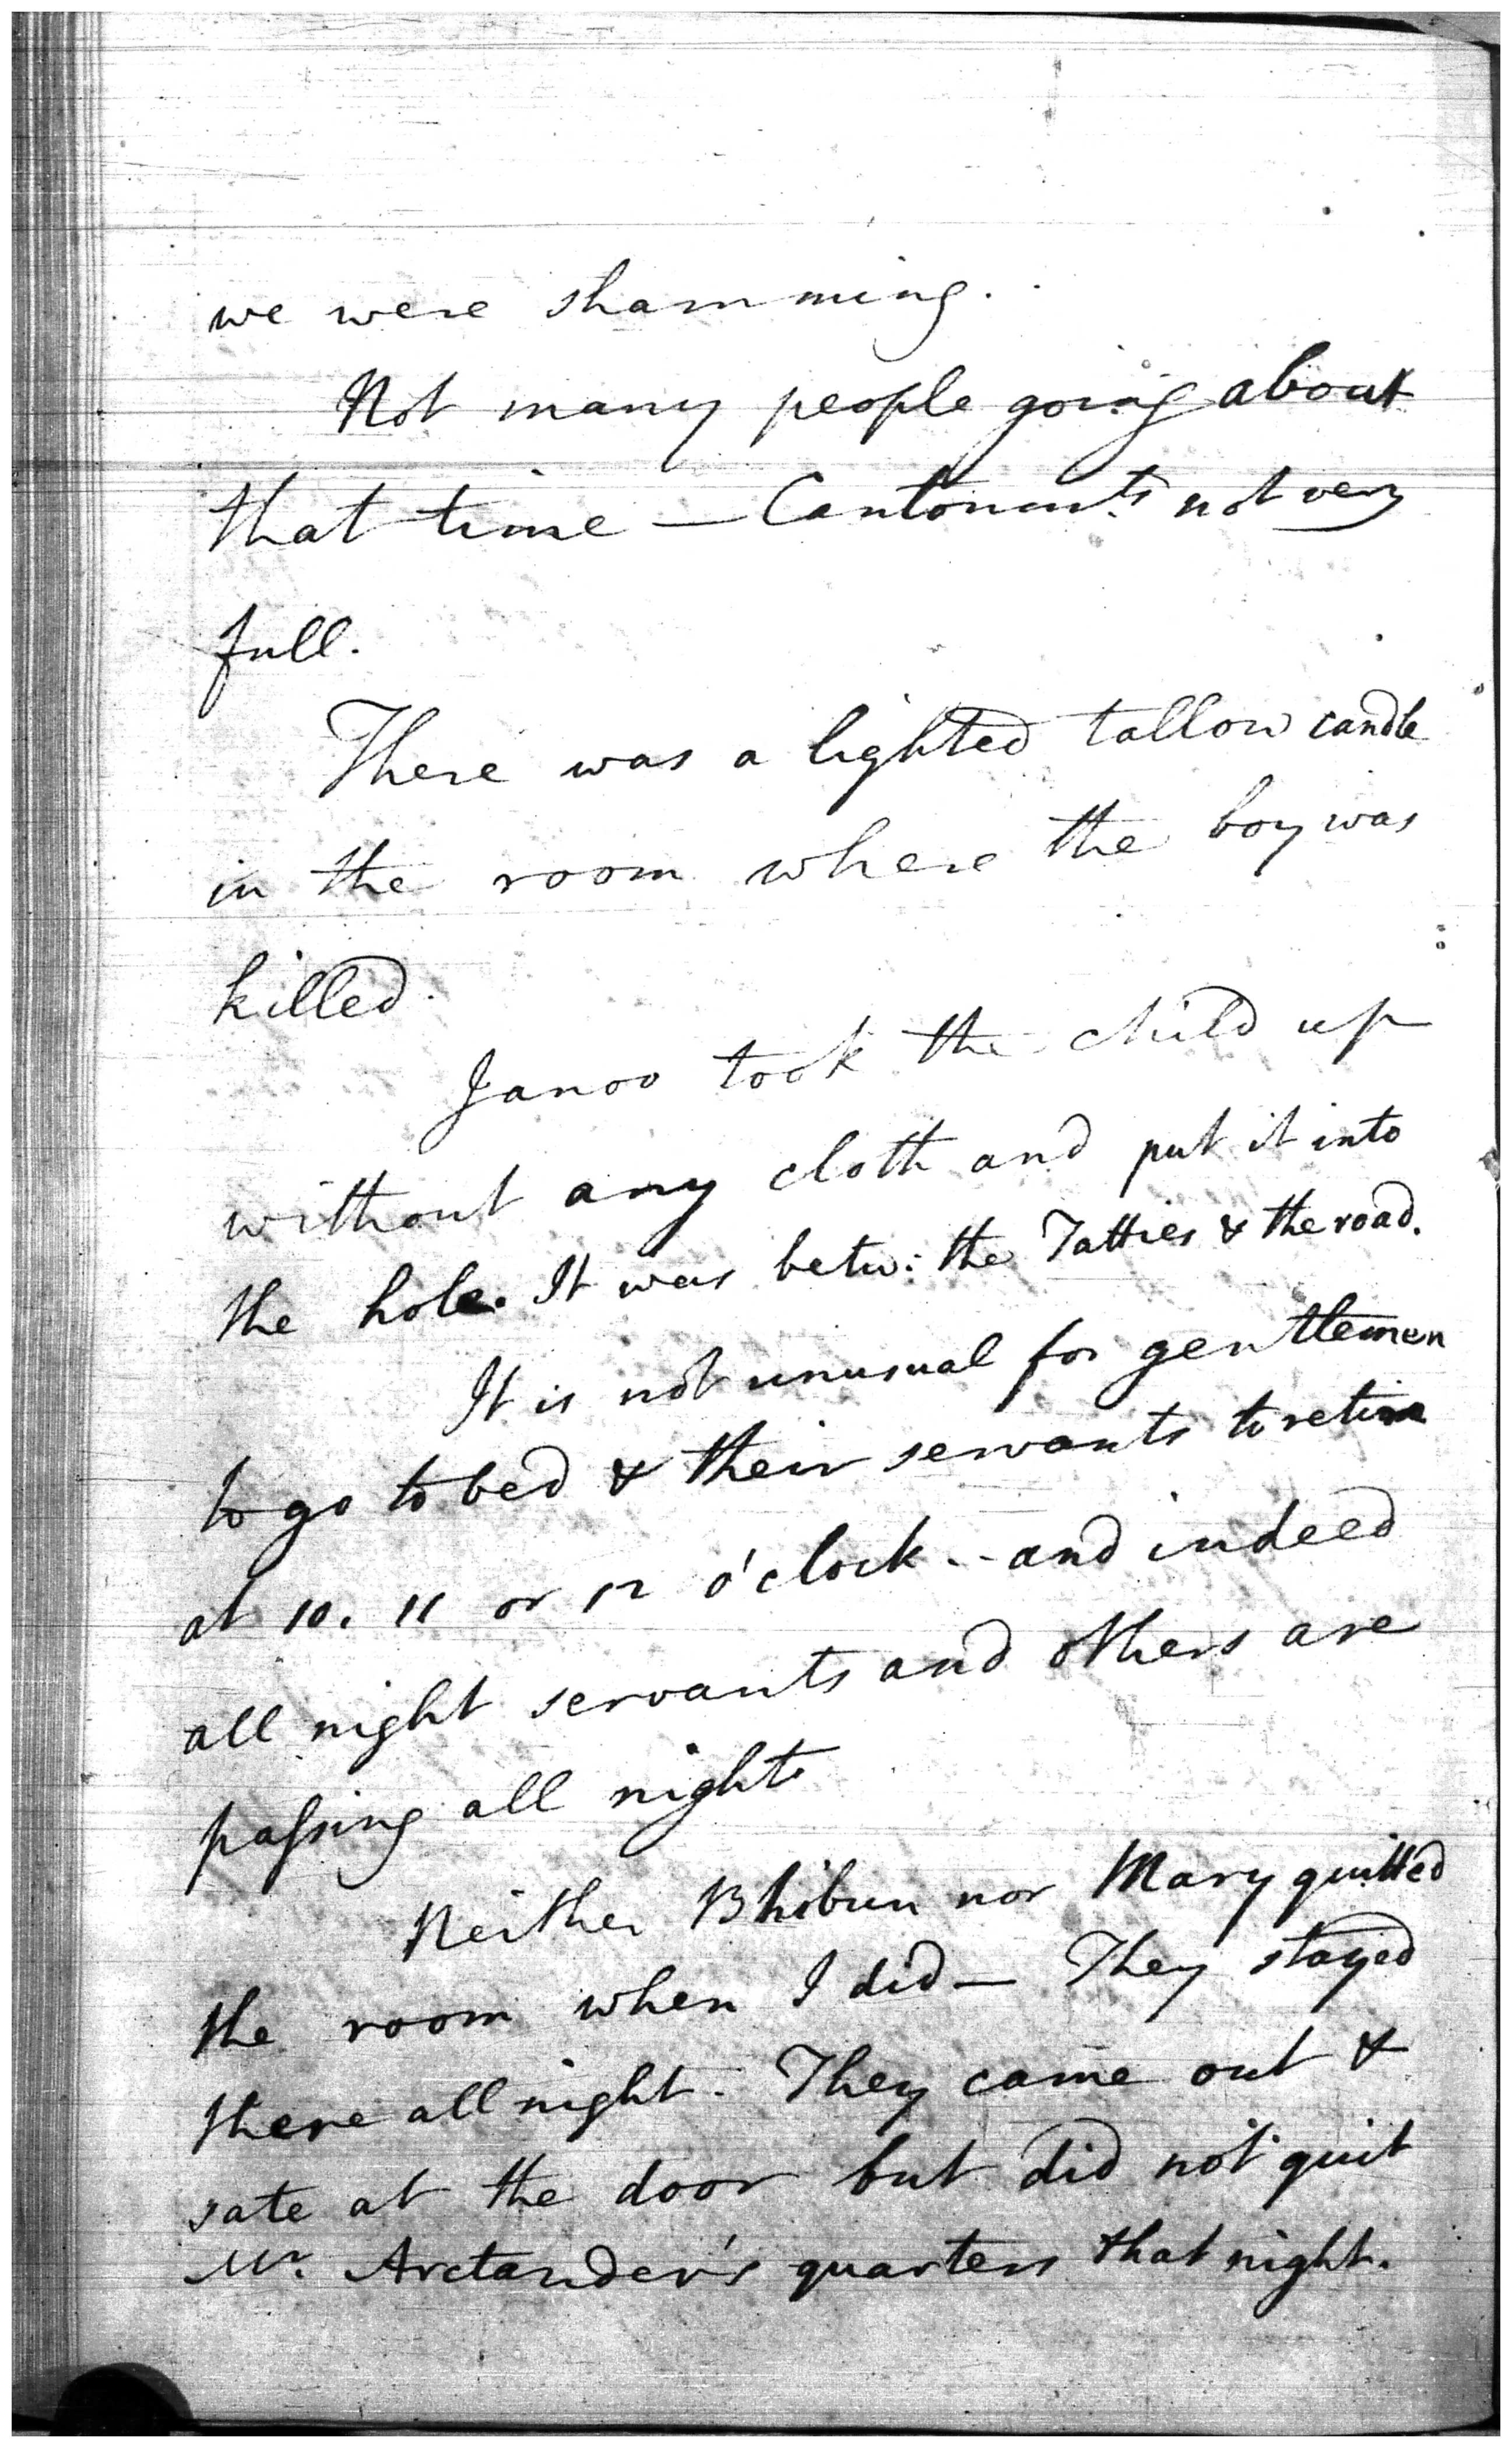 we were shamming.
Not many people going about
that time — Cantonmts. not very
full.
There was a lighted tallow candle
in the room where the boy was
killed.
Janoo took the child up
without any cloth and put it into
the hole. It was betw: the Tatties & the road.
It is not unusual for gentlemen
to go to bed & their servants to retire
at 10. 11 or 12 o'clock -- and indeed
all night servants and others are
passing all night
Neither Bhibun nor Mary quitted
the room when I did — They stayed
there all night. They came out &
sate at the door but did not quit
Mr. Arctander's quarters that night.